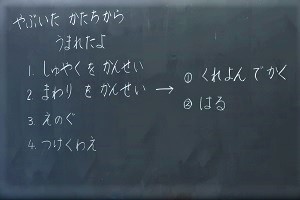 やぶいた かたちから
うまれたよ
1. しゅやくをかんせい
2. まわり をかんせい → ① くれよん でかく
② はる
3. えのぐ
4. つけくわえ